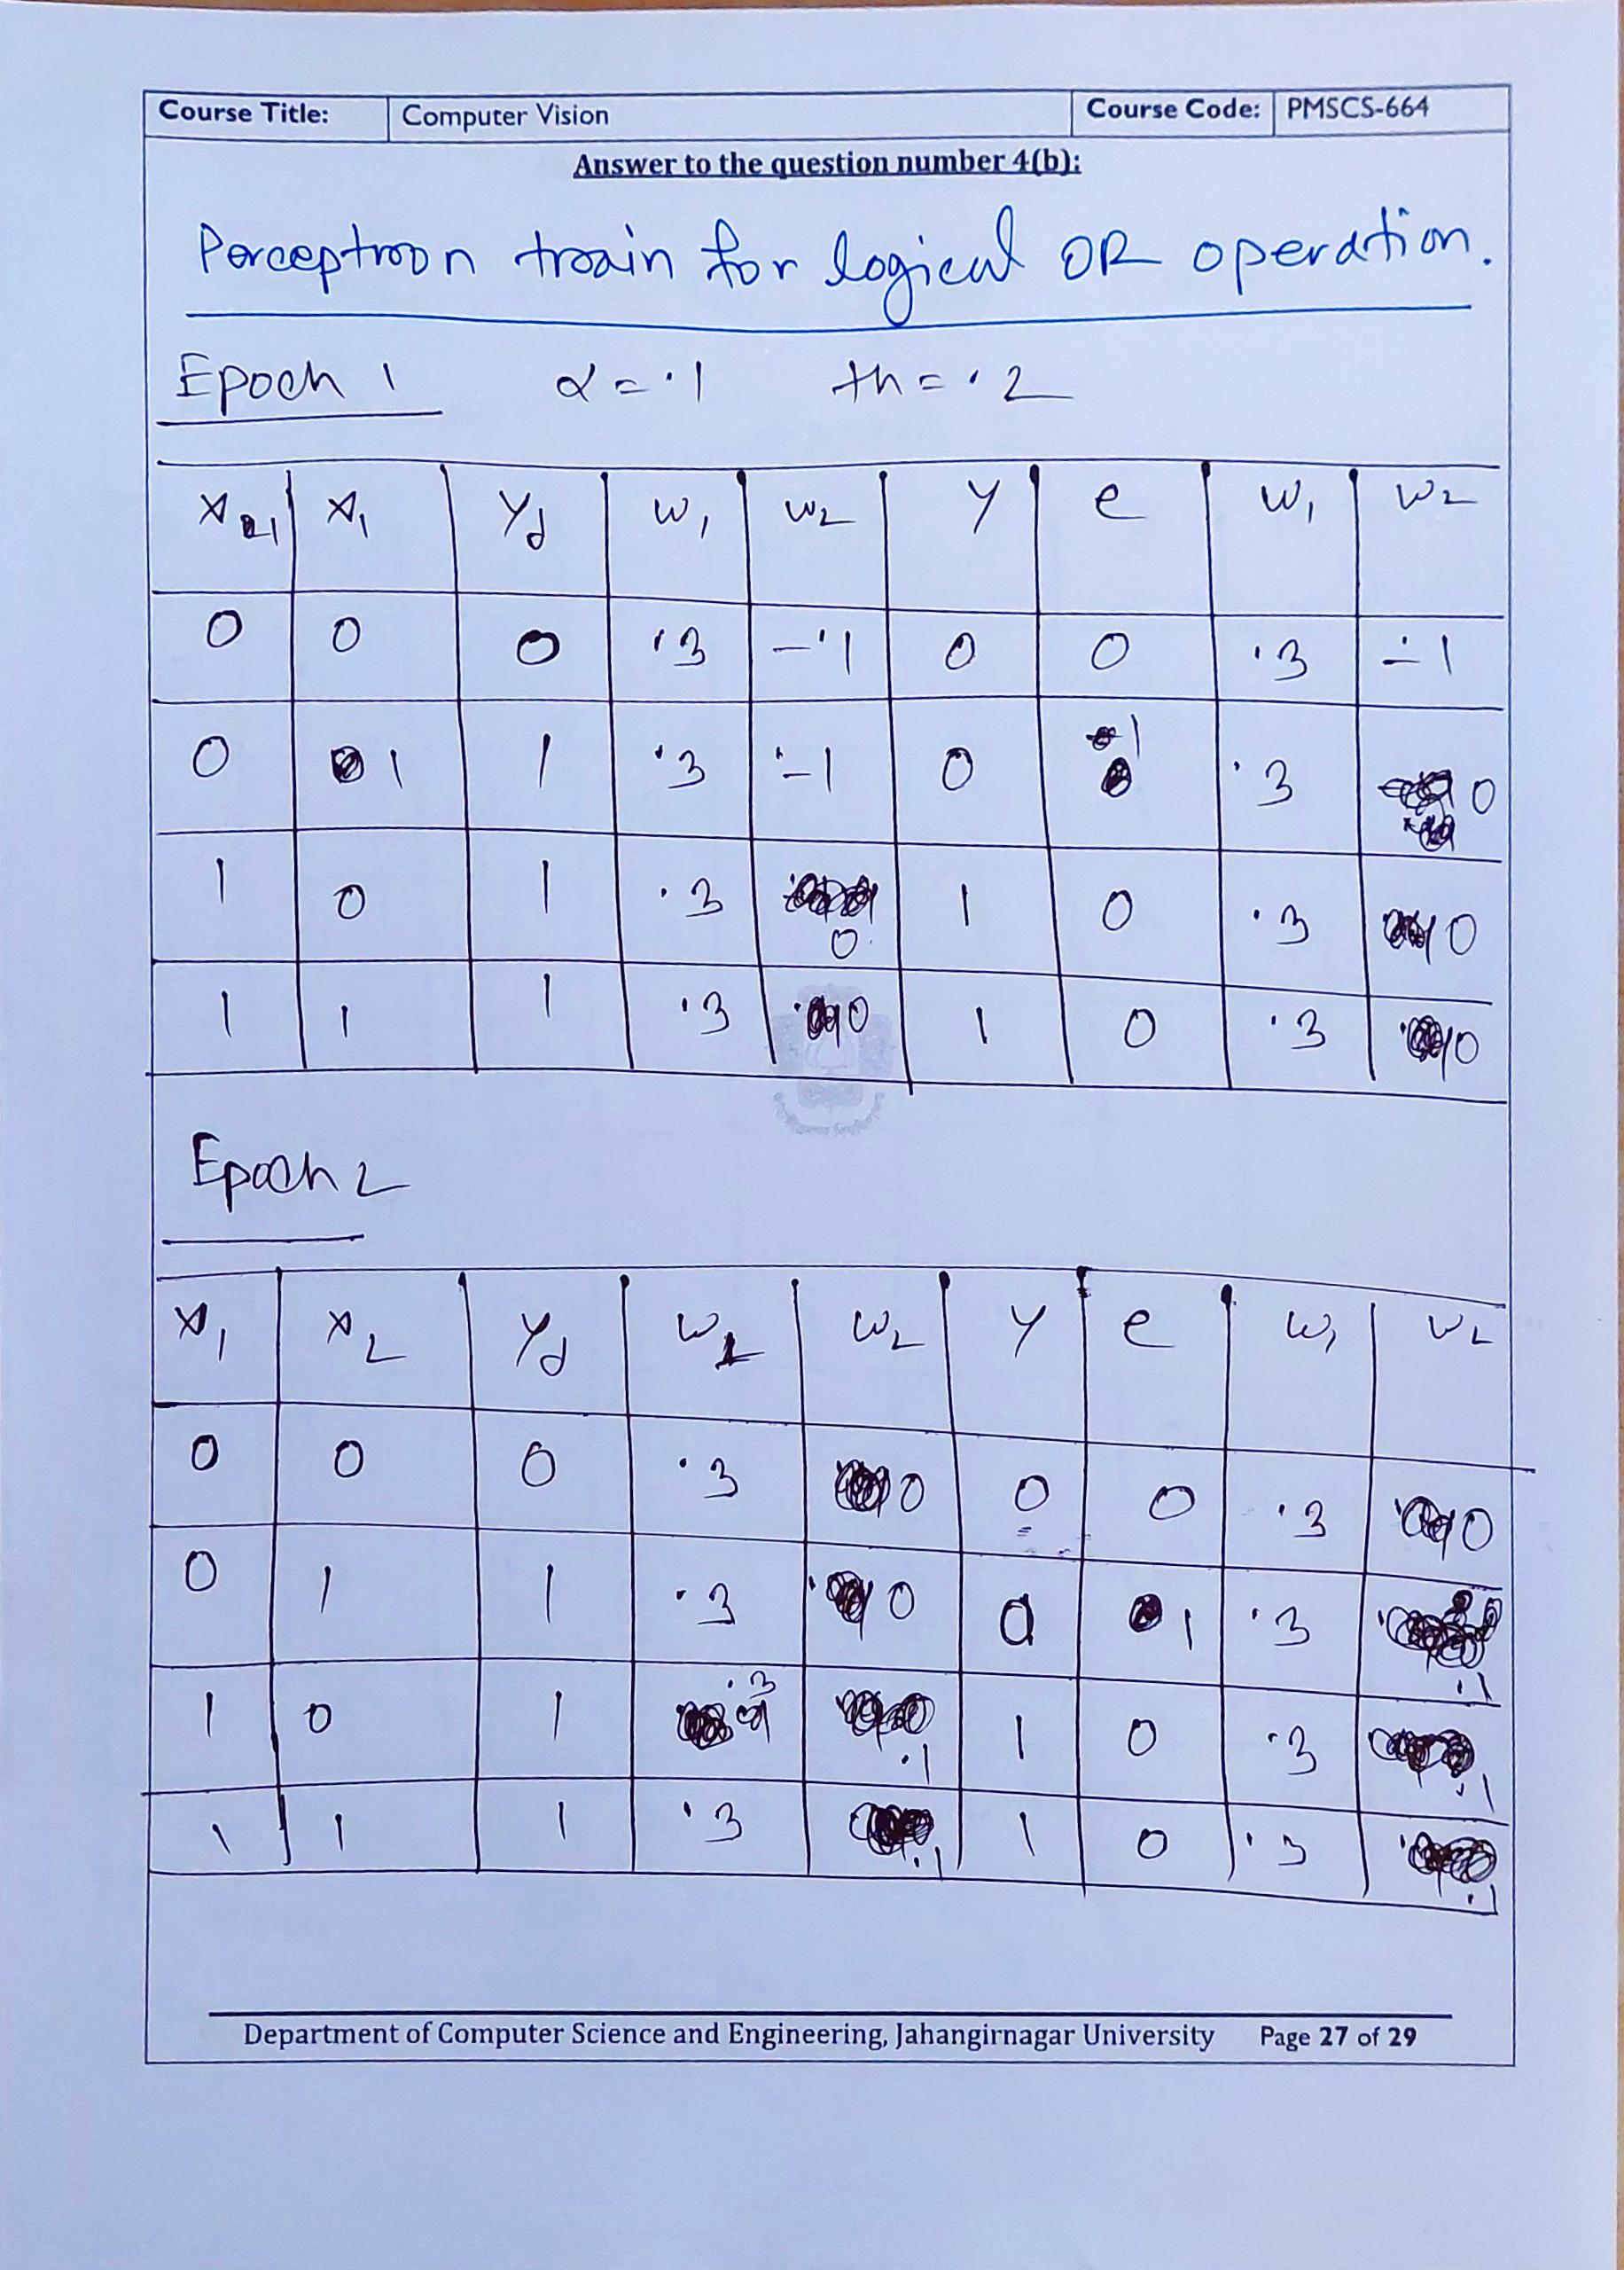 Course Title: Computer Vision Course Code: PMSCS-664
Answer to the question number 4(b):
Perceptron train for logical OR operation.
Epoch 1 α = .1 th = .2
x1 x1 Yd w1 w2 y e w1 w2
0 0 0 .3 -.1 0 0 .3 -.1
0 1 1 .3 -.1 0 1 .3 0
1 0 1 .3 0 1 0 .3 0
1 1 1 .3 0 1 0 .3 0
Epoch 2
x1 x2 Yd w1 w2 y e w1 w2
0 0 0 .3 0 0 0 .3 0
0 1 1 .3 0 0 1 .3 .1
1 0 1 .3 .1 1 0 .3 .1
1 1 1 .3 .1 1 0 .3 .1
Department of Computer Science and Engineering, Jahangirnagar University Page 27 of 29